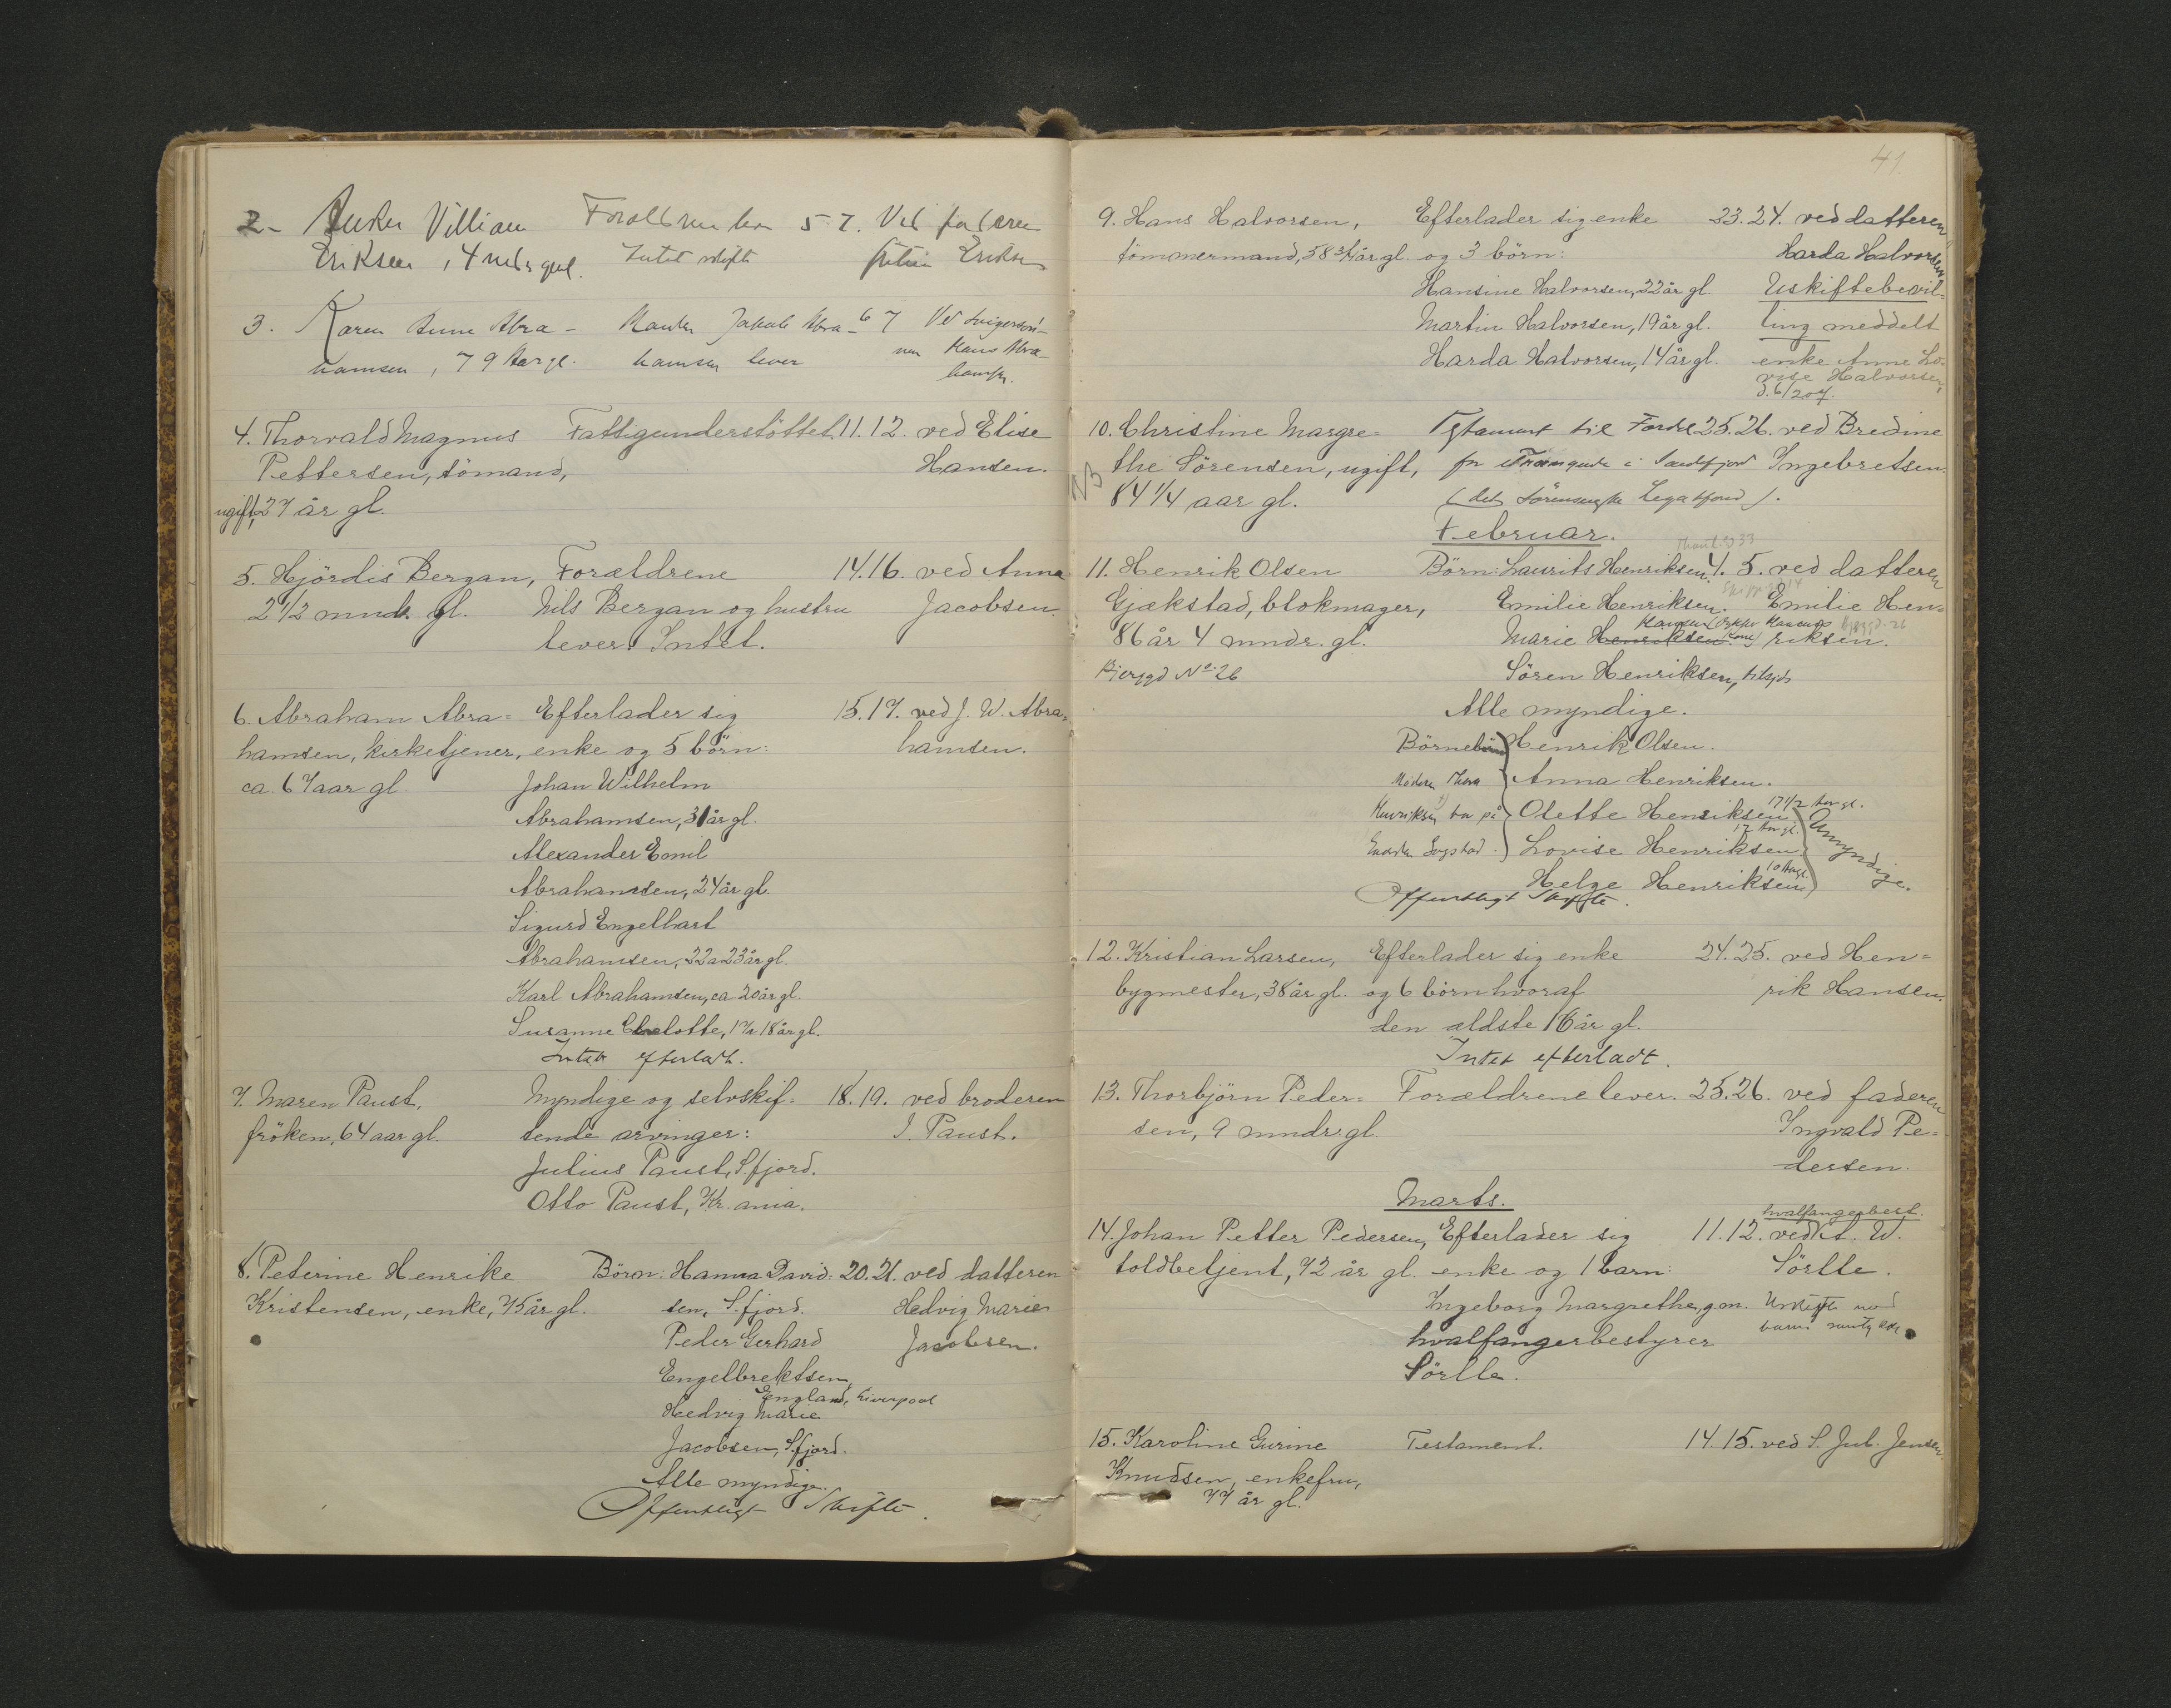 2. Anker Villiam Forældrene lever 5 7. Ved faderen
Eriksen, 4 mndr gml. Intet skifte Eriksen
3. Karen Anne Abra- Manden Jakob Abra- 6 7 Ved Svigersøn-
hamsen, 79 Aar gl. hamsen lever nen Hans Abra-
hamsen.
4. Thorvald Magnus Fattigunderstöttet. 11. 12. ved Elise
Pettersen, sömand, Hansen.
ugift, 27 år gl.
5. Hjördis Bergan, Forældrene 14. 16. ved Anna
2 1/2 mndr. gl. Nils Bergan og hustru Jacobsen.
lever. Intet.
6. Abraham Abra= Efterlader sig 15. 17. ved J. W. Abra=
hamsen, kirketjener, enke og 5 börn: hamsen.
ca. 67 aar gl. Johan Wilhelm
Abrahamsen, 31 år gl.
Alexander Emil
Abrahamsen, 24 år gl.
Sigurd Engelhart
Abrahamsen, 22 a 23 år gl.
Karl Abrahamsen, ca 20 år gl.
Susanne Charlotte, 17 a 18 år gl.
Intet efterladt.
7. Maren Paust, Myndige og selvskif= 18. 19. ved broderen
fröken, 64 aar gl. tende arvinger: J. Paust.
Julius Paust, S.fjord.
Otto Paust, Kr.ania.
8. Peterine Henrike Börn: Hanna David= 20. 21. ved datteren
Kristensen, enke, 75 år gl. sen, S.fjord. Hedvig Marie
Peder Gerhard Jacobsen.
Engelbrektsen,
England, Liverpool
Hedvig Marie
Jacobsen, S.fjord.
Alle myndige.
Offentligt Skifte.
41.
9. Hans Halvorsen, Efterlader sig enke 23. 24. ved datteren
tömmermand, 58 3/4 år gl. og 3 börn: Harda Halvorsen
Hansine Halvorsen, 22 år gl. Uskiftebevil=
Martin Halvorsen, 19 år gl. ling meddelt
Harda Halvorsen, 14 år gl. enke Anne Lo=
vise Halvorsen,
d. 6/2 07.
10. Christine Margre= Testament til Fordel 25. 26. ved Bredine
NB
the Sörensen, ugift, for Trængende i Sandefjord Ingebretsen.
84 1/4 aar gl. (det Sörensenske Legatfond).
Februar.
11. Henrik Olsen Börn: Laurits Henriksen. 4. 5. ved datteren
Gjækstad, blokmager, Emilie Henriksen. Emilie Hen=
Hansen
86 år 4 mndr. gl. Marie Henriksen riksen.
Bjerggd No 26 Sören Henriksen, tilsjös
Alle myndige.
Börnebörn Henrik Olsen.
Moderen Thora Anna Henriksen.
17 1/2 Aar gl.
Henriksen bor på Olette Henriksen
12 Aar gl. Umyndige.
Lovise Henriksen
10 Aar gl.
Helge Henriksen
Offentligt Skifte.
12. Kristian Larsen, Efterlader sig enke 24. 25. ved Hen=
bygmester, 38 år gl. og 6 börn hvoraf rik Hansen.
den ældste 16 år gl.
Intet efterladt.
13. Thorbjörn Peder= Forældrene lever. 25. 26. ved faderen
sen, 9 mndr. gl. Ingvald Pe=
dersen.
Marts.
hvalfangerbest.
14. Johan Petter Pedersen, Efterlader sig 11. 12. ved A. W.
toldbetjent, 72 år gl. enke og 1 barn: Sörlle.
Ingeborg Margrethe, g.m. Uskifte med
hvalfangerbestyrer barns samtykke
Sörlle.
15. Karoline Gurine Testament. 14. 15. ved S. Jul. Jensen.
Knudsen, enkefru,
77 år gl.